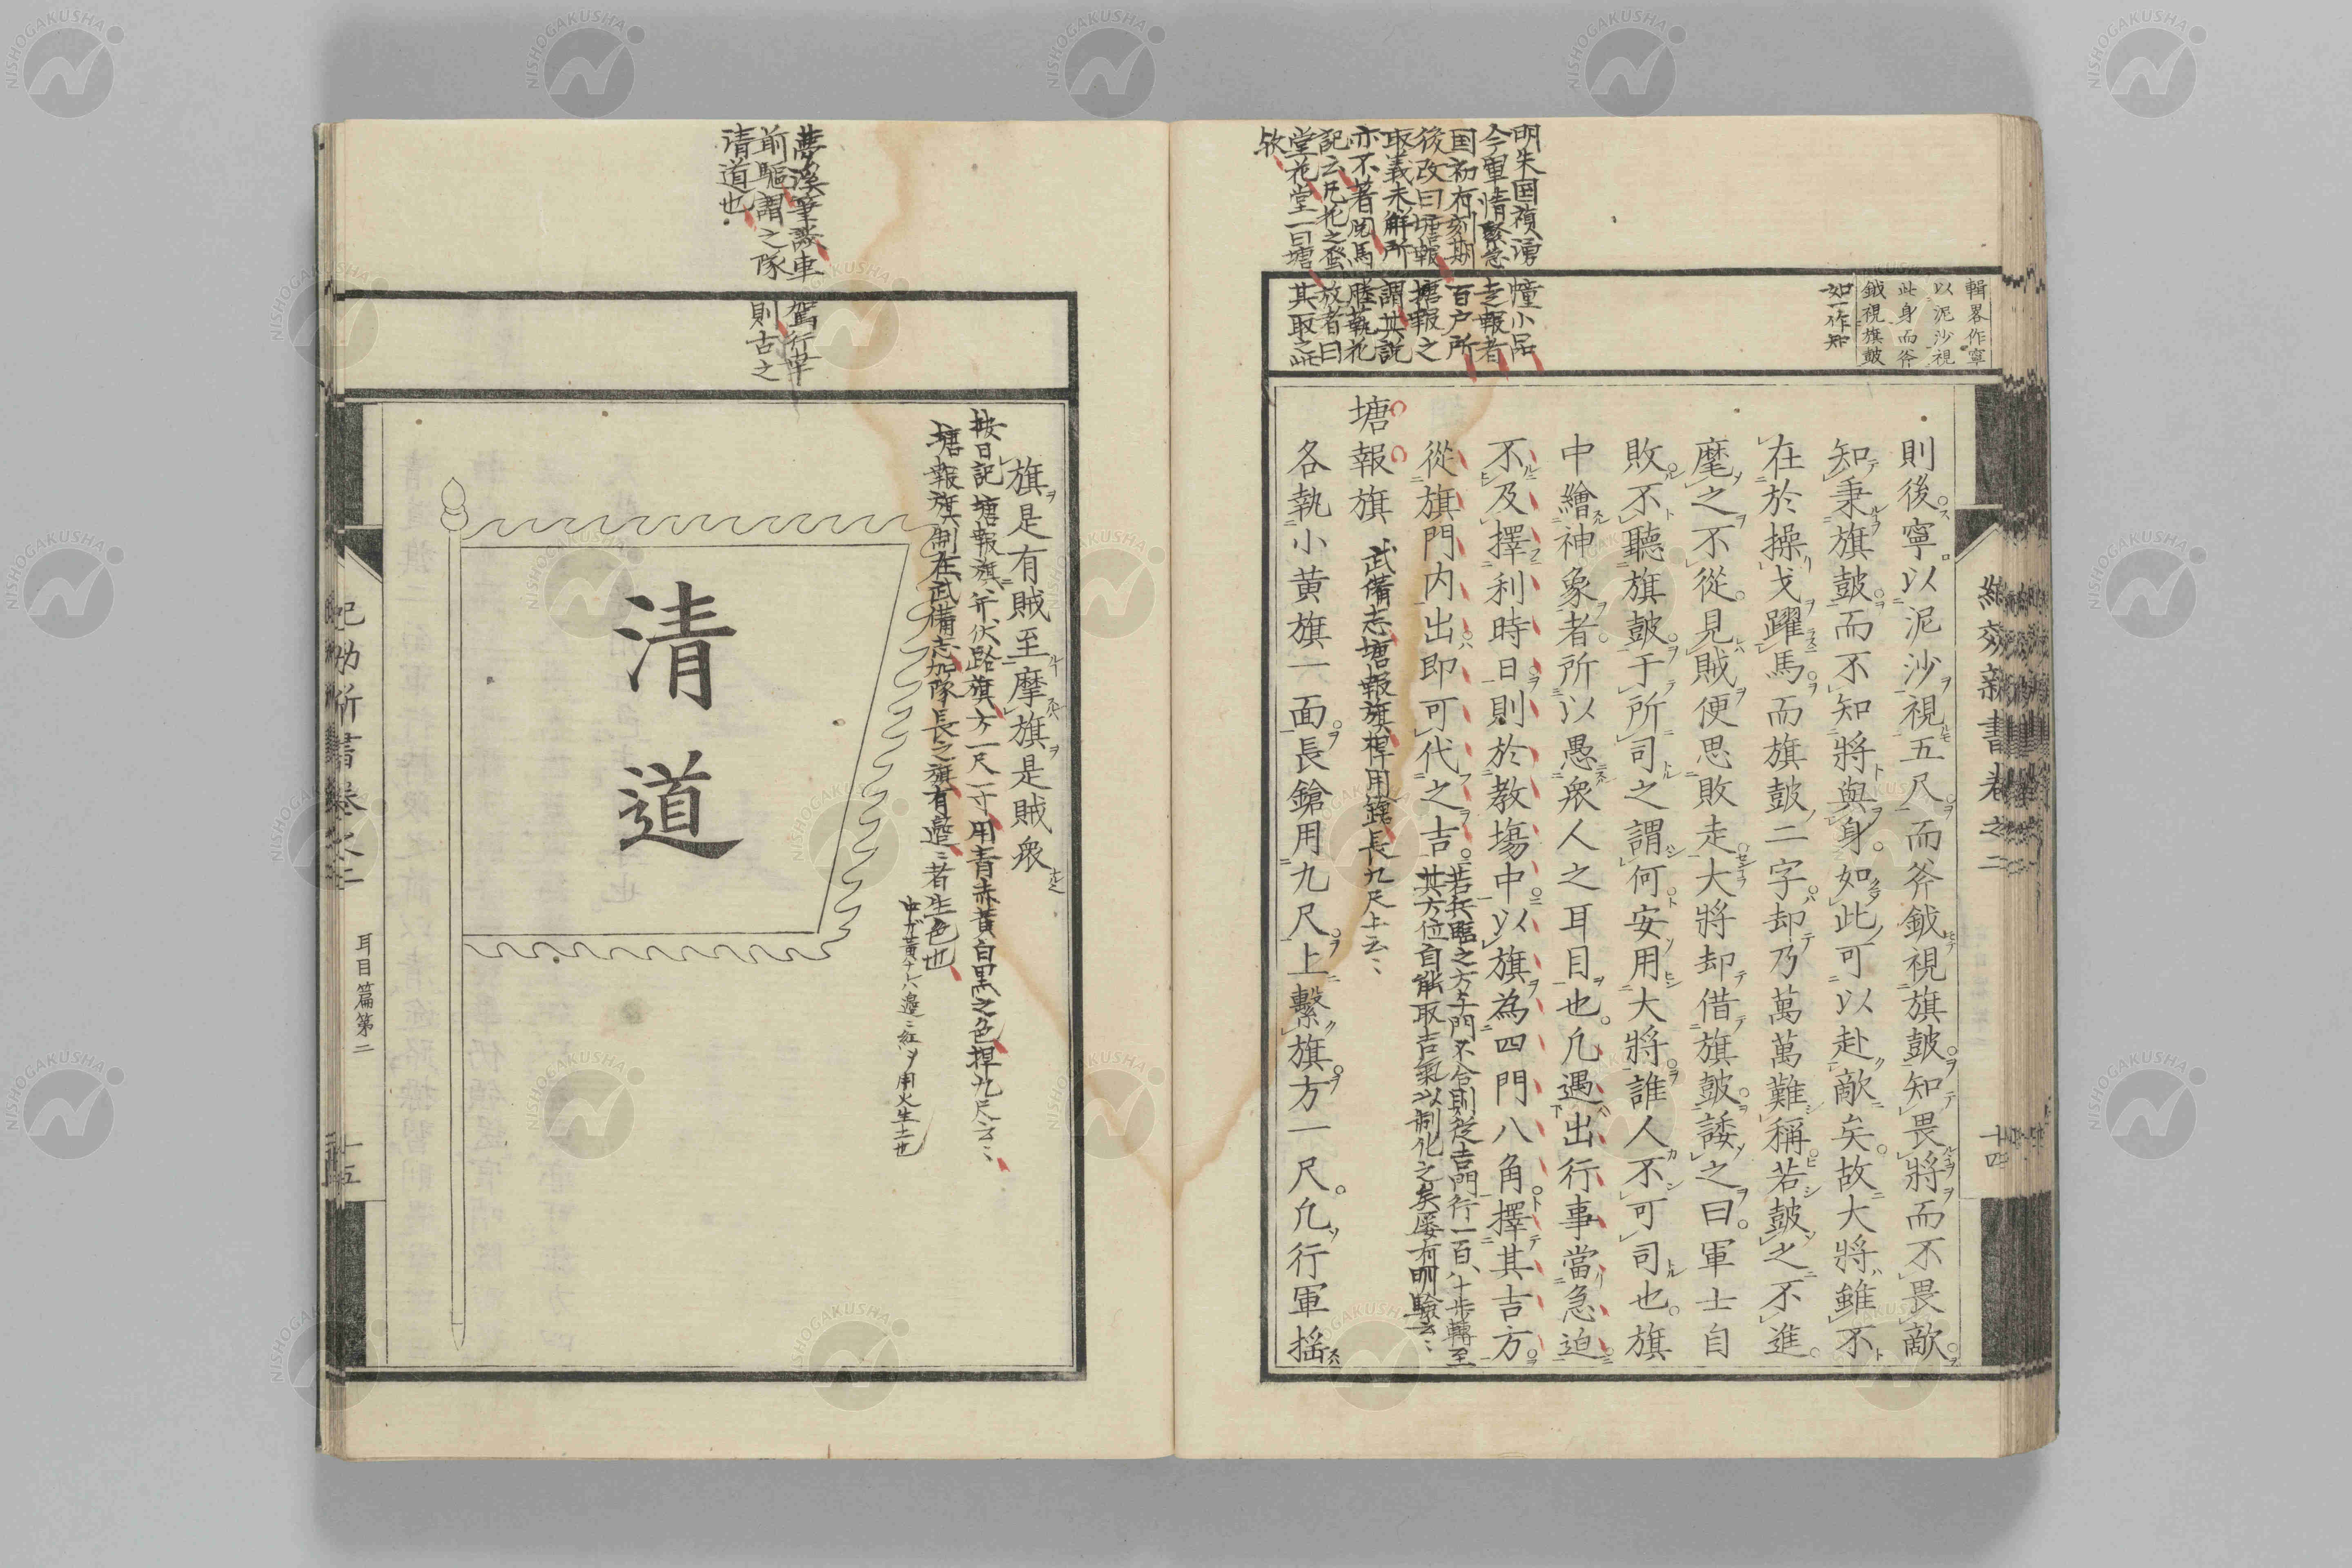 輯畧作寧
以泥沙視
此身而斧
鉞視旗皷
如一作知
明朱国禎湧幢小品
今軍情緊急走報者
国初有刻期百户所
後改曰塘報塘報之
取義未解所謂其説
亦不著
記云凡花之蚤放者曰
堂花堂一曰塘其取之此
欤
則後寧以泥沙視五尺而斧鉞視旗皷知畏將而不畏敵
知秉旗皷而不知將與身如此可以赴敵矣故大將雖不
在於操戈躍馬而旗皷二字却乃萬萬難稱若皷之不進
麾之不從見賊便思敗走大將却借旗皷諉之曰軍士自
敗不聽旗皷于所司之謂何安用大將誰人不可司也旗
中繪神象者所以愚衆人之耳目也凡遇出行事當急迫
不及擇利時日則於教塲中以旗為四門八角擇其吉方
從旗門内出即可代之吉
若兵臨之方与門不合則從吉門行一百八十步轉至
其方位自能取吉氣以制化之矣屡有明驗云〻
塘報旗
武備志塘報旗桿用鎗長九尺上云〻
各執小黄旗一面長鎗用九尺上繫旗方一尺凡行軍揺
紀効新書巻之二
十四
夢溪筆談車駕行幸
前驅謂之隊則古之
清道也
旗是有賊至摩旗是賊衆
按日記塘報旗、斥伏路旗方一尺一寸用青赤黄白黒之色桿九尺云〻
塘報旗制在武備志加隊長之旗有邉〻者生色也
中ガ黄ナレハ邉ニ紅ヲ用火生土也
清道
紀効新書巻之二
耳目篇第二
十五
NISHOGAKUSHA